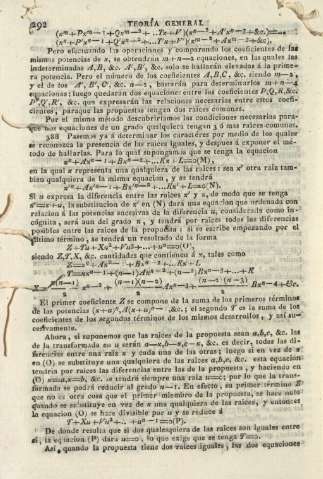 292 TEORÍA GENERAL
Pero efectuando las operaciones y comparando los coeficientes de las
mismas potencias de x, se obtendrán m+n-2 equaciones, en las quales las
indeterminadas A, B, &c. A', B', &c. solo se hallarán elevadas á la prime-
ra potencia. Pero el número de los coeficientes A, B, C, &c. siendo m-2,
y el de los A', B', C', &c. n-2, bastarán para determinarlos m+n-4
equaciones; luego quedarán dos equaciones entre los coeficientes P, Q, R, &c.
P', Q', R', &c. que expresarán las relaciones necesarias entre estos coefi-
cientes, para que las propuestas tengan dos raices comunes.
Por el mismo método descubriríamos las condiciones necesarias para
que dos equaciones de un grado qualquiera tengan 3 ó mas raices comunes.
388 Pasemos ya á determinar los caractéres por medio de los quales
se reconozca la presencia de las raices iguales, y despues á exponer el mé-
todo de hallarlas. Para lo qual supongamos que se tenga la equacion
en la qual x representa una qualquiera de las raices: sea x' otra raiz tam-
bien qualquiera de la misma equacion, y se tendrá
Si u expresa la diferencia entre las raices x' y x, de modo que se tenga
x'=x+u, la substitucion de x' en (N) dará una equacion que ordenada con
relacion á las potencias sucesivas de la diferencia u, considerada como in-
cógnita, será aun del grado n, y tendrá por raices todas las diferencias
posibles entre las raices de la propuesta: si se escribe empezando por el
último término, se tendrá un resultado de la forma
siendo Z, T, X, &c. cantidades que contienen á x, tales como
El primer coeficiente Z se compone de la suma de los primeros términos
de las potencias
coeficientes de los segundos términos de los mismos desarrollos, y así su-
cesivamente.
Ahora, si suponemos que las raices de la propuesta sean a, b, c, &c. las
de la transformada en u serán a-x, b-x, c-x, &c. es decir, todas las di-
ferencias entre una raiz x y cada una de las otras; luego si en vez de x
en (O) se substituye una qualquiera de las raices a, b, c, &c. esta equacion
tendrá por raices las diferencias entre las de la propuesta, y haciendo en
formada se podrá reducir al grado n-1. En efecto, su primer término Z
que no es otra cosa que el primer miembro de la propuesta, se hace nulo
quando se substituye en vez de x una qualquiera de las raices, y entonces
la equacion (O) se hace divisible por u y se reduce á
De donde resulta que si dos qualesquiera de las raices son iguales entre
sí, la equacion (P) dará u=0, lo que exige que se tenga T=0.
Así, quando la propuesta tiene dos raices iguales, las dos equaciones